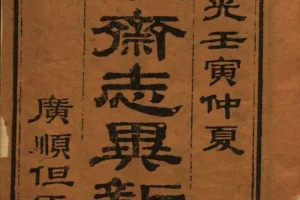 光壬寅仲夏
齋志異新
廣順但